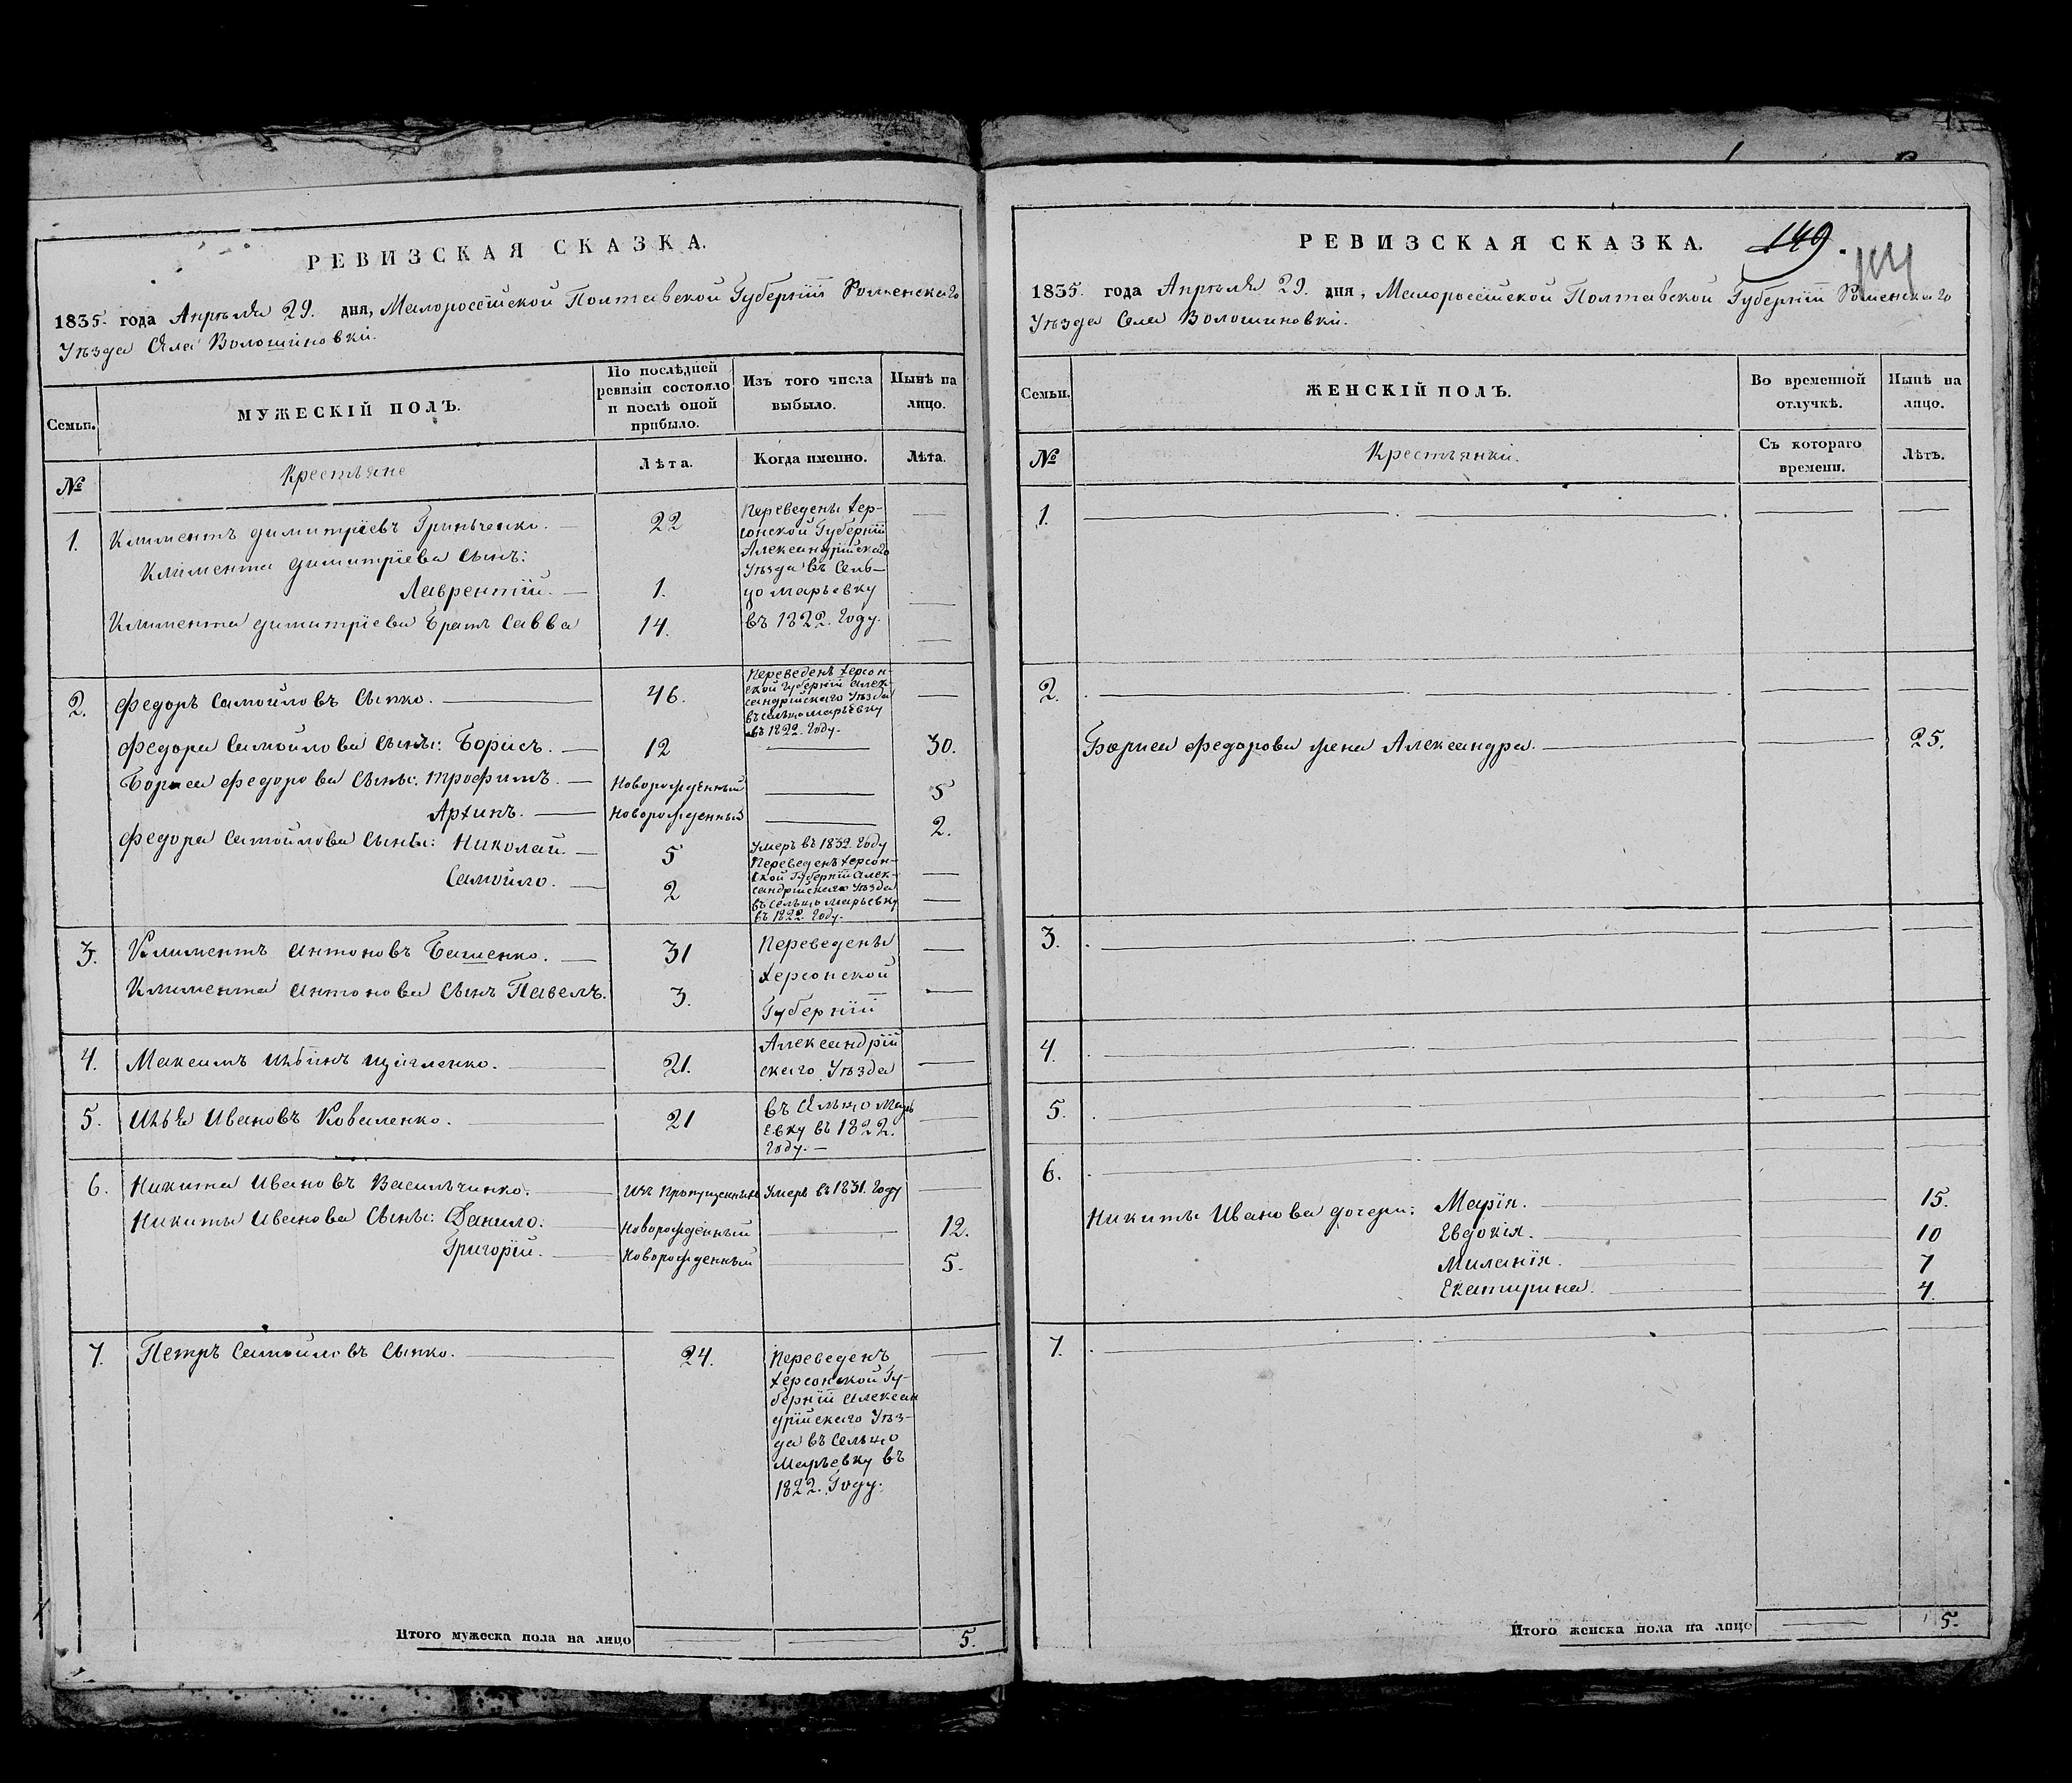 РЕВИЗСКАЯ СКАЗКА.
1835. года Апрѣля 29. дня, Малороссійской Полтавской Губерніи Роменскаго
Уѣзда Села Волошиновки.
Семьи.
МУЖЕСКІЙ ПОЛЪ.
По послѣдней
ревизіи состояло
и послѣ оной
прибыло.
Изъ того числа
выбыло.
Нынѣ на
лицо.
№
Крестьяне
Лѣта.
Когда именно.
Лѣта.
1. Климентъ димитріевъ Гриньченко. — 22
Климента димитріева Сынъ:
Лаврентій. — 1.
Климента димитріева Братъ Савва 14.
Переведены Хер-
сонской Губерніи
Александрійскаго
Уѣзда въ Сель-
цо марьевку
въ 1822. Году.
2. Федоръ Самойловъ Сыпко. — 46.
Переведенъ Херсон-
ской Губерніи Алек-
сандрійскаго Уѣзда
въ сельцо марьевку
въ 1822. Году.
Федора Самойлова Сынъ: Борисъ. — 12 — 30.
Бориса Федорова Сынъ: трофимъ. — Новорожденный — 5
Архипъ. — Новорожденный — 2.
Федора Самойлова Сыны: Николай. — 5 Умеръ въ 1832. Году
Самойло. — 2
Переведенъ Херсон-
ской Губерніи Алек-
сандрійскаго Уѣзда
въ сельцо марьевку
въ 1822. Году.
3. Климентъ Антоновъ Башенко. — 31
Климента Антонова Сынъ Павелъ. 3.
4. Максимъ 21.
5. Илья Ивановъ Коваленко. — 21
Переведены
Херсонской
Губерніи
Александрій
скаго Уѣзда
въ Сельцо Марь
евку въ 1822.
Году. —
6. Никита Ивановъ Васильченко. — Изъ Пропущенныхъ Умеръ въ 1831. Году
Никиты Иванова Сыны: Данило. — Новорожденный — 12.
Григорій. — Новорожденный — 5.
7. Петръ Самойловъ Сыпко. — 24.
Переведенъ
Херсонской Гу-
берніи Алексан
дрійскаго Уѣз-
да въ Сельцо
Марьевку въ
1822. Году.
Итого мужеска пола на лицо 5.
РЕВИЗСКАЯ СКАЗКА. 149.
1835. года Апрѣля 29. дня, Малороссійской Полтавской Губерніи Роменскаго
Уѣзда Села Волошиновки.
Семьи.
ЖЕНСКІЙ ПОЛЪ.
Во временной
отлучкѣ.
Нынѣ на
лицо.
№
Крестьянки.
Съ котораго
времени.
Лѣтъ.
1.
2.
Бориса Федорова жена Александра. — 25.
3.
4.
5.
6.
Никиты Иванова дочери: Марія. — 15.
Евдокія. — 10
Миланія. — 7
Екатирина. — 4.
7.
Итого женска пола на лицо 5.